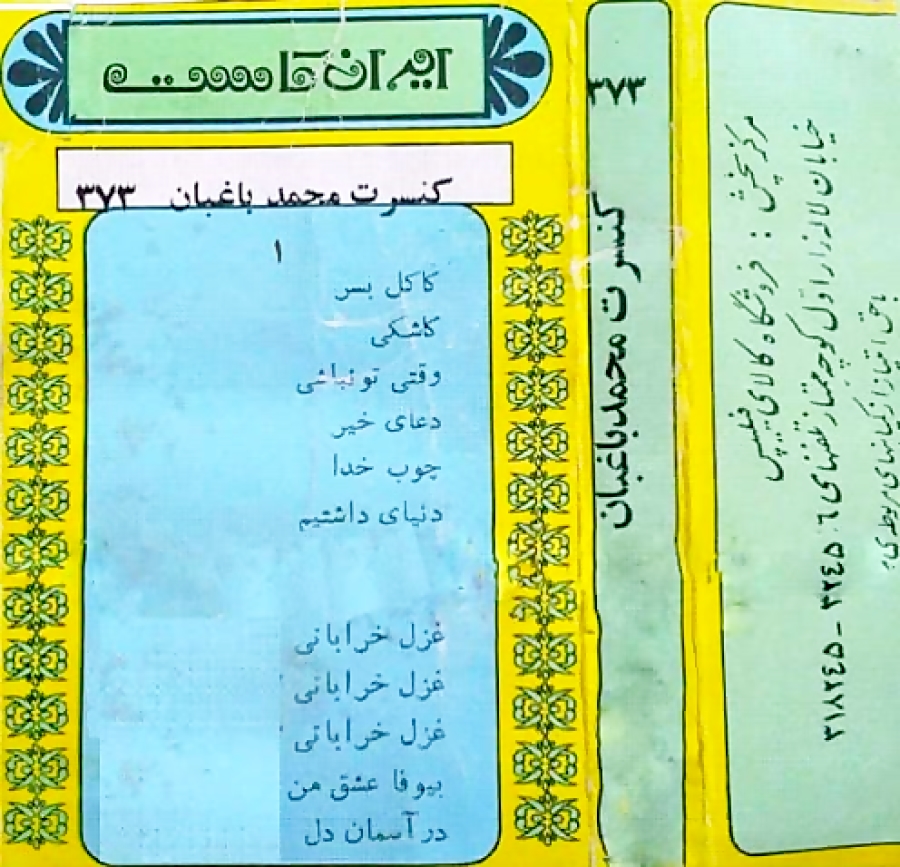 ایران کاست
کنسرت محمد باغبان ۳۷۳
۱
کاکل بسر
کاشکی
وقتی تو نباشی
دعای خیر
چوب خدا
دنیای داشتیم
غزل خراباتی
غزل خراباتی
غزل خراباتی
بیوفا عشق من
در آسمان دل
۳۷۳
کنسرت محمد باغبان
مرکز پخش : فروشگاه کالای فیلیپس
خیابان لاله زار اول کوچه ممتاز تلفنهای ۳۲٤٥۰٦ - ۳۱۸۲٤٥